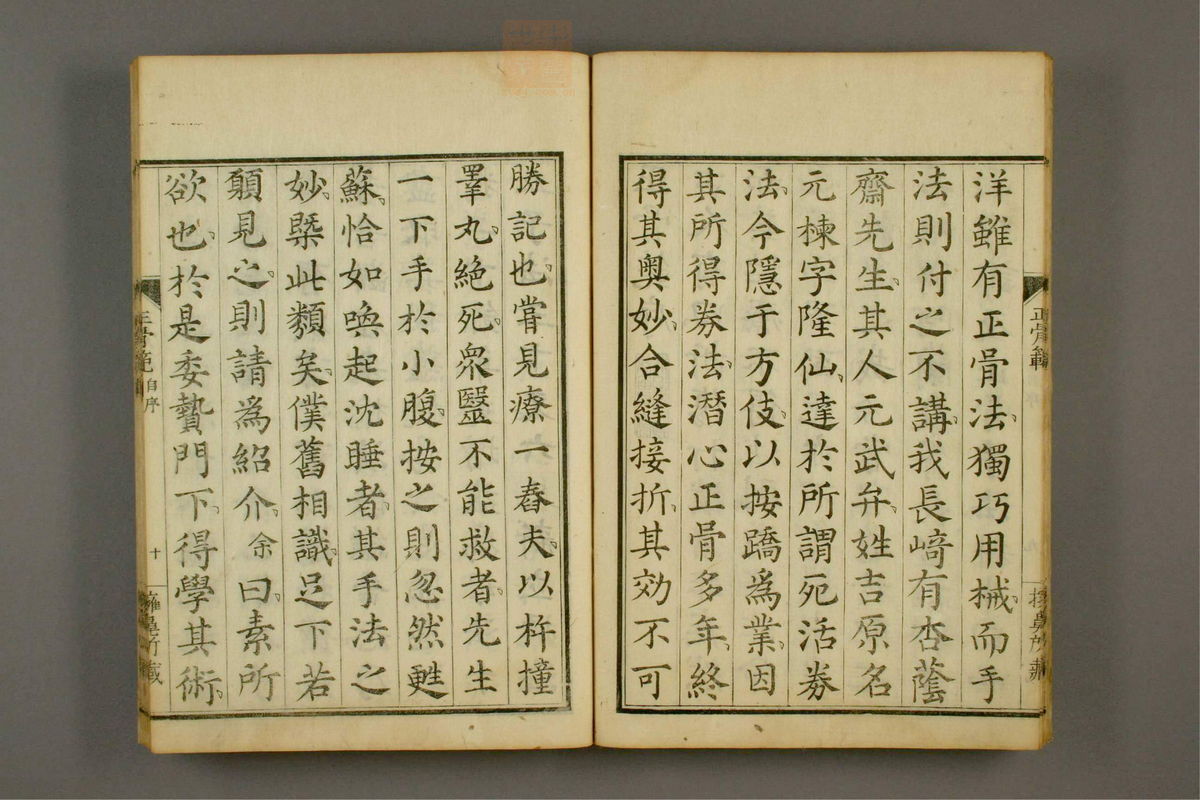 洋雖有正骨法獨巧用械而手
法則付之不講我長﨑有杏蔭
齋先生其人元武弁姓吉原名
元棟字隆仙達於所謂死活劵
法今隱于方伎以按蹻爲業因
其所得劵法潛心正骨多年終
得其奧妙合縫接折其効不可
正骨範
勝記也嘗見療一舂夫以杵撞
睾丸絶死眾醫不能救者先生
一下手於小腹按之則忽然甦
蘇恰如喚起沈睡者其手法之
妙槩此類矣僕舊相識足下若
願見之則請爲紹介余曰素所
欲也於是委贄門下得學其術
正骨範 自序 十